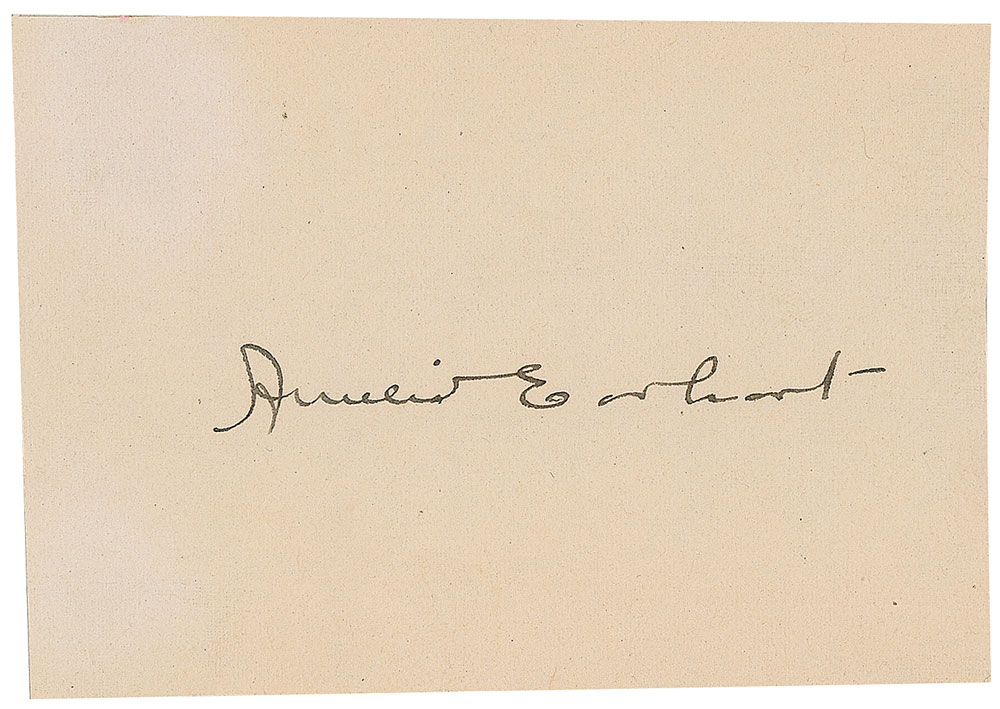 Amelia Earhart